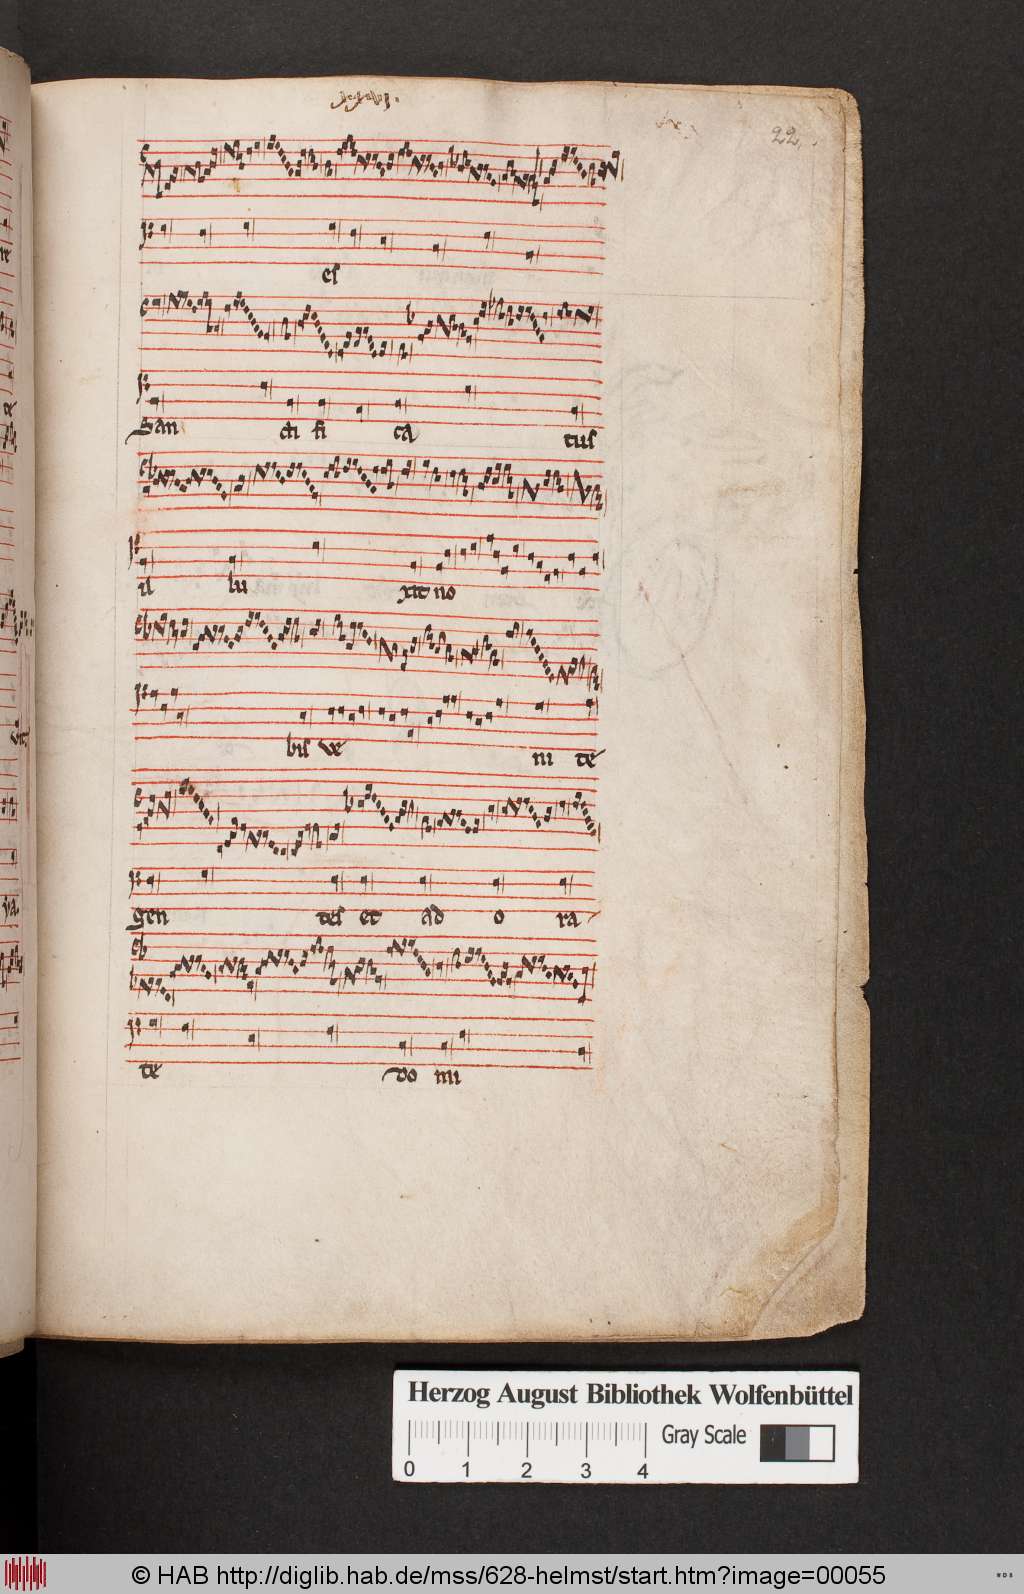 22
es
San cti fi ca tus
il lu xit no
bis ve ni te
gen tes et ad o ra
te do mi
Herzog August Bibliothek Wolfenbüttel
Gray Scale
0 1 2 3 4
© HAB http://diglib.hab.de/mss/628-helmst/start.htm?image=00055